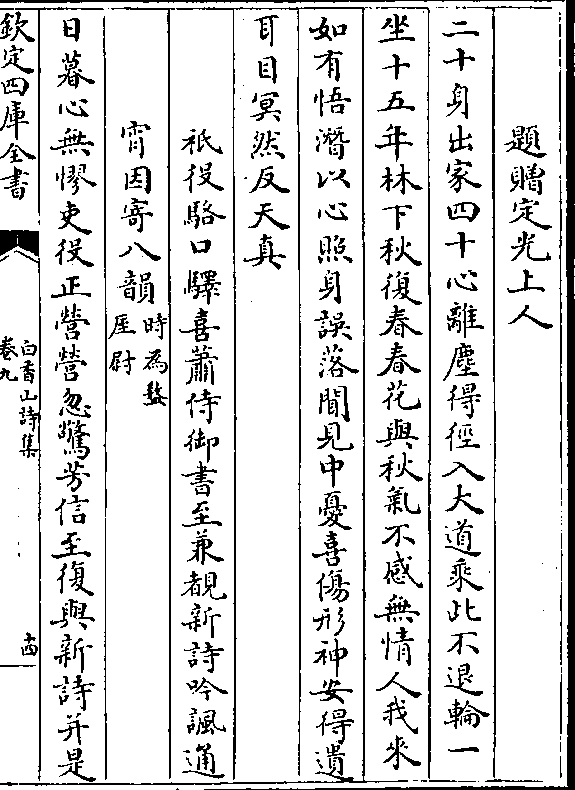 題贈定光上人
二十身出家四十心離塵得徑入大道乘此不退輪一
坐十五年林下秋復春春花與秋氣不感無情人我來
如有悟潛以心照身誤落聞見中憂喜傷形神安得遺
耳目冥然反天真
祇役駱口驛喜蕭侍御書至兼覩新詩吟諷通
宵因寄八韻時為盩
厔尉
日暮心無憀吏役正營營忽驚芳信至復與新詩并是
欽定四庫全書
白香山詩集
卷九
十四